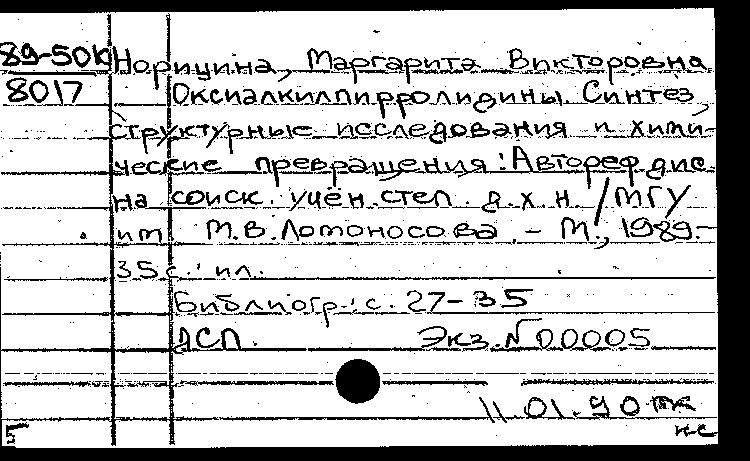 89-50к Норицина, Маргарита Викторовна
8017 Оксиалкилпирролидины. Синтез,
структурные исследования и хими-
ческие превращения: Автореф. дис.
на соиск. учён. степ. д. х. н. / МГУ
им. М.В. Ломоносова. - М., 1989.-
35 с.: ил.
Библиогр.: с. 27-35
ДСП. Экз. N 00005
11.01.90
нс
5